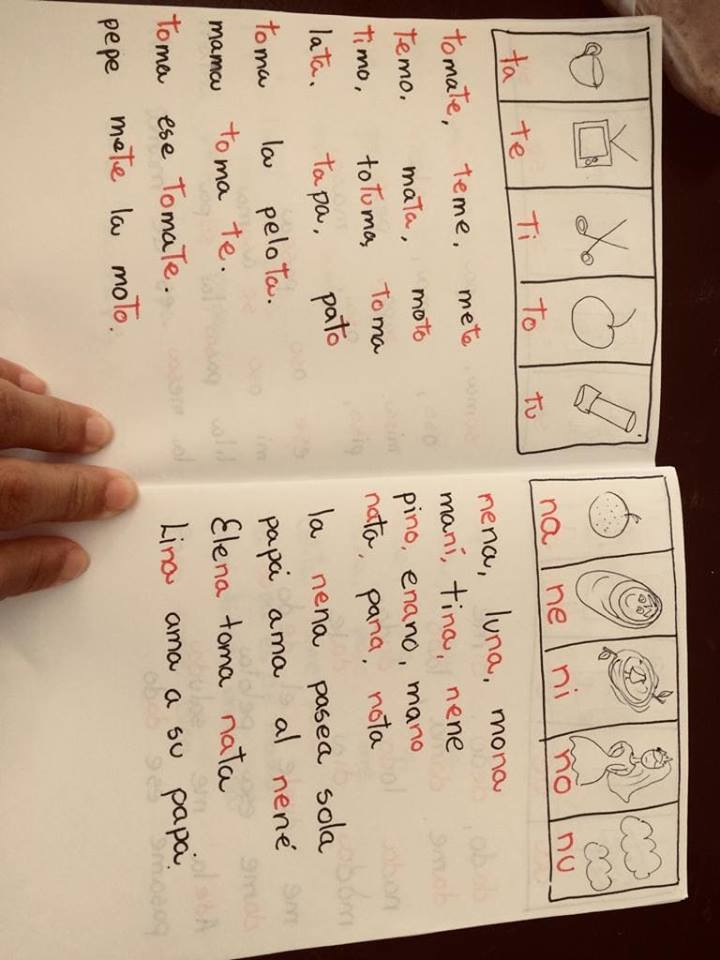 ta te ti to tu
tomate, teme, mete
temo, mata, moto
timo, totuma, toma
lata, tapa, pato
toma la pelota.
mama toma te.
toma ese tomate.
pepe mete la moto.
na ne ni no nu
nena, luna, mona
maní, tina, nene
pino, enano, mano
nata, pana, nota
la nena pasea sola
papá ama al nené
Elena toma nata
Lina ama a su papá.